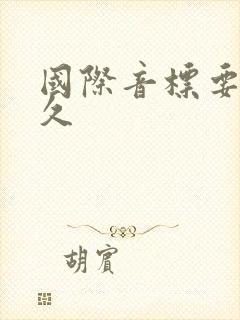 國際音標要
久
胡賓